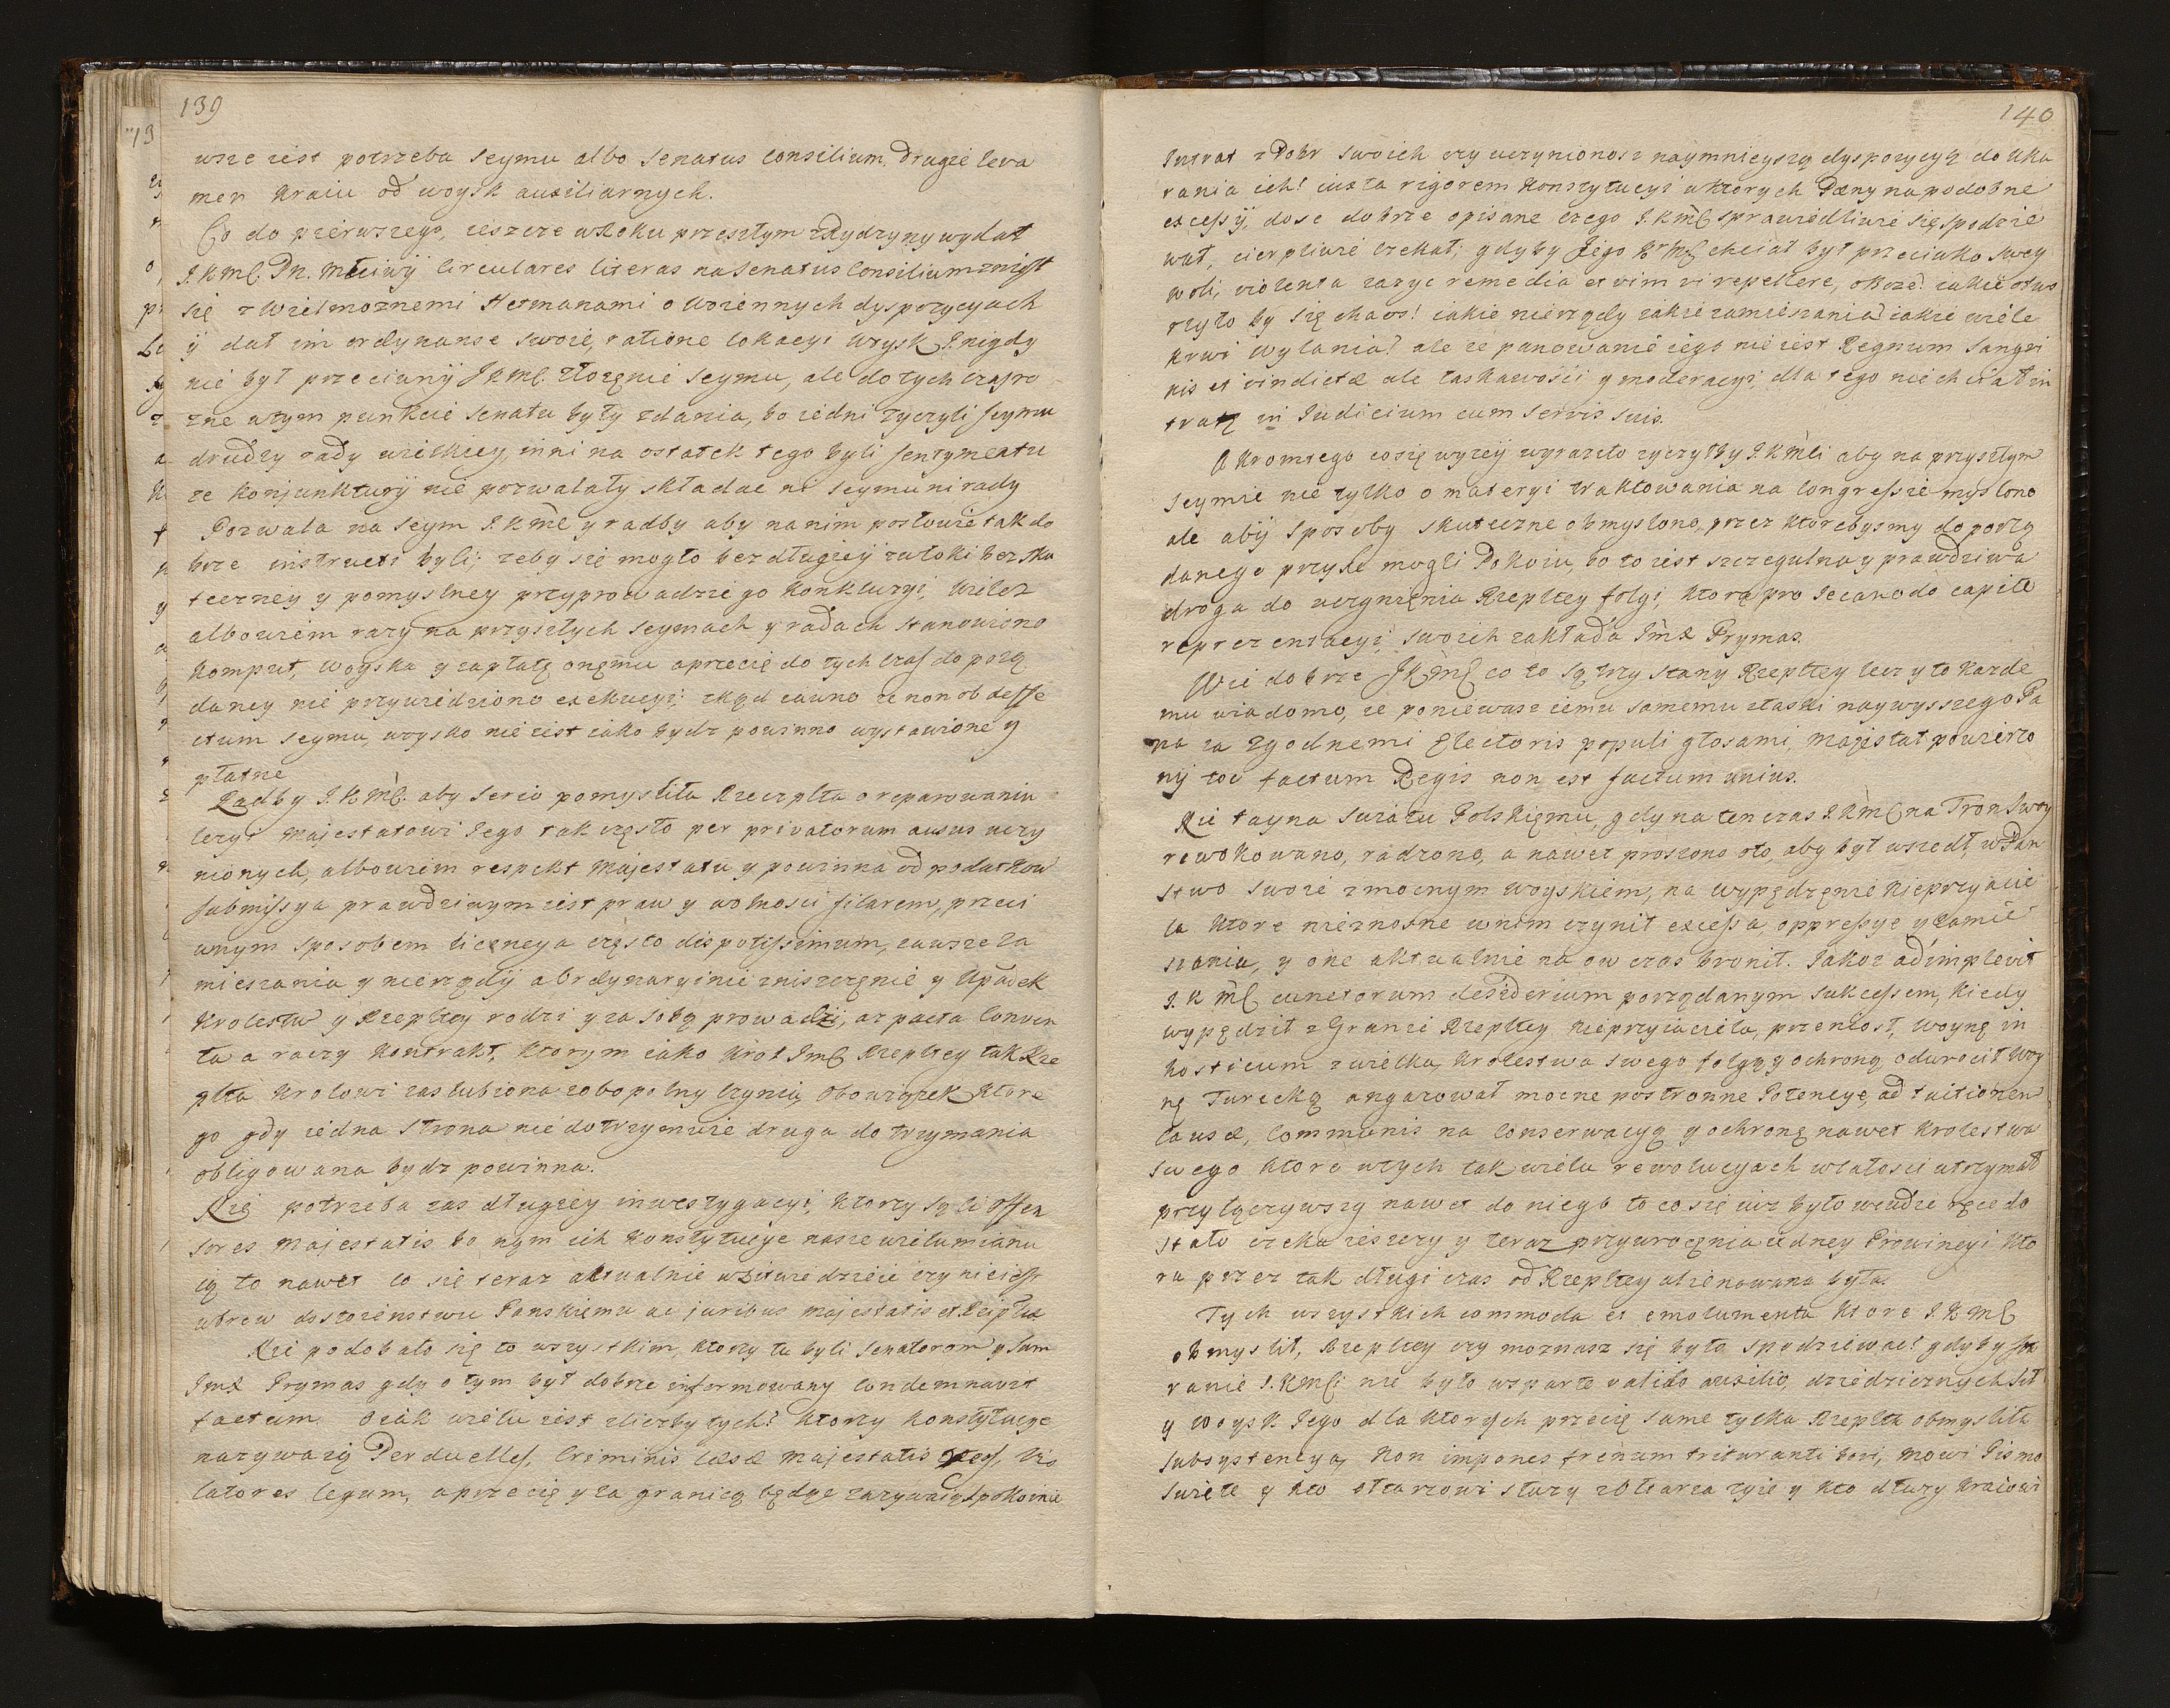 139
wsze iest potrzeba seymu albo Senatus Consilium, drugie leva
men Kraiu od woysk auxiliarnych.
Co do pierwszego, ieszcze w Roku przeszłym z Rydzyny wydał
J.K.Mć. Pn. Młciwÿ circulares literas na Senatus Consilium zniosł
się z Wielmoznemi Hetmanami o Woiennych dyspozycyach
ÿ dał im ordynanse swoie, ratione lokacyi woysk. Nigdy
nie był przeciwnÿ JKMć złozęnie seymu, ale do tych czas ro
zne w tym punkcie Senatu były zdania, bo iedni zyczyli seymu
drudzy rady wielkiey, inni na ostatek tego byli sentymentu
ze konjunkturÿ nie pozwalały składac ni seymu ni rady
Pozwala na seym J.K.Mć y radby aby na nim posłowie tak do
brze instructi byli; zeby się mogło bez długieÿ zwłoki bez sku
teczney y pomyslney przyprowadzie go konkluzyi, wiele
albowiem razy na przyszłych seymach y radach stanowiono
komput, woyska y zapłatę onęmu a przecię do tych czas do pozą
daney nie przywiedziono exekucyi; zkąd iawno ze non ob deffe
ctum seymu, woysko nie iest iako bydz powinno wystawione y
płatne
Radby J.K.Mć. aby serio pomysliła Rzeczplta o reparowaniu
lezyi Majestatowi Jego tak często per privatorum ausus uczy
nionych, albowiem respekt Majestatu y powinna od podatkow
submissya prawdziwym iest praw y wolnosci filarem, przeci
wnym sposobem liczneya często dispotissimum, zawsze za
mieszania y nierządÿ a ordynaryinie zniszczęnie y Upadek
Krolestw y Rzepltey rodzi y za sobą prowadzi, az pacta Conven
ta a raczy kontrakt, ktorym iako Krol Jmć Rzepltey tak Rze
plta Krolowi zaslubiona zobopolny czynią obowiązek, ktore
go gdy iedna strona nie dotrzymuie druga do trzymania
obligowana bydz powinna.
Nie potrzeba zas długiey inwestygacyi, ktorzy są ci offen
sores Majestatis bo nam ich konstytucye nasze wielu mianu
ią to nawet co się teraz aktualnie w Litwie dzieie czy nie iest
wbrew dostoienstwu Panskiemu ac juribus majestatis et Reiplcæ
Nie podobało się to wszystkim, ktorzy tu byli Senatorom y sam
Jmć Prymas gdy o tym był dobrze informowany condemnavit
factum. O iak wielu iest z liczby tych! ktorzy konstytucye
nazywaią Perduelles, Criminis læsæ Majestatis reos, Vio
latores legum, a przecię y za granicą będąc zazywaią spokoinie
140
Intrat z Dobr swoich czy uczyniono sz naymnieyszą dyspozycyą do Uka
rania ich! iuxta rigorem konstytucyi w ktorych Pæny na podobne
excessÿ, dosc dobrze opisane czego J.K.Mć sprawiedliwie się spodzie
wał, cierpliwie czekał; gdyby Jego KrMć chciał był przeciwko swey
woli, violenta zazyc remedia et vim vi repellere, o Boze! iakie otwo
rzyło by się chaos! iakie nierządy iakie zamieszania! iakie wiele
krwi wylania! ale ze panowanie iego nie iest Regnum Sangvi
nis et vindictæ ale łaskawosci y moderacyi, dla tego nie chciał in
trare in Iudicium cum servis suis.
A kromtego co się wyzeÿ wyraziło zyczyłby J.K.Mci aby na przyszłym
seymie nie tylko o materyi traktowania na Congressie myslono
ale abÿ sposoby skuteczne obmyslono, przez ktorebysmy do pozą
danego przysc mogli Pokoiu, bo to iest szczegulna y prawdziwa
droga do uczynięnia Rzepltey folgi, ktorą pro Secundo capite
reprezentacyi swoich zakłada Jmć Prymas.
Wie dobrze JKMć co to są trzy stany Rzepltey lecz y to kazde
mu wiadomo, ze poniewasz iemu samemu z łaski naywyszszego Pa
na za zgodnemi Electoris populi głosami, Majestat powierzo
nÿ toc factum Regis non est factum unius.
Nie tayna swiatu Polskięmu, gdy na ten czas J.K.Mć na Tron Swoy
rewokowano, radzono, a nawet proszono oto, aby był wszedł, w Pan
stwo swoie z mocnym woyskiem, na wypędzęnie nieprzyiacie
la ktore nieznosne w nim czynił excessa, oppressye y zamie
szania, y one aktualnie na ow czas bronił. Jakoz adimplevit
J.K.Mć cunctorum desiderium porządanym sukcessem, kiedy
wypędził z Granic Rzepltey nieprzyiaciela, przeniosł, woynę in
hosticum z wielką Krolestwa swego folgą y ochroną, odwrocił woy
nę Turecką angazował mocne postronne Potencye, ad tuitionem
Causæ, Communis na Conserwacyą y ochronę nawet Krolestwa
swego ktore w tych tak wielu rewolucyach w całosci utrzymał
przyłączywszy nawet do niego to co się iuz było w cudze ręce do
stało czeka ieszczy y teraz przywrocęnia iedney Prowincyi kto
ra przez tak długi czas od Rzepltey alienowana była.
Tych wszystkich commoda et emolumenta ktore J.K.Mć
obmyslił, Rzepltey czy moznasz się było spodziewac! gdyby sta
ranie J.KMci nie było wsparte valido auxilio, dziedzicznych sił
y woysk Jego dla ktorych przecię same tylko Rzeplta obmysliła
subsystencyą, Non impones frenum trituranti bovi, mowi Pismo
swięte y kto ołtarzowi słuzy z Ołtarza zyie y kto słuzy kraiowi